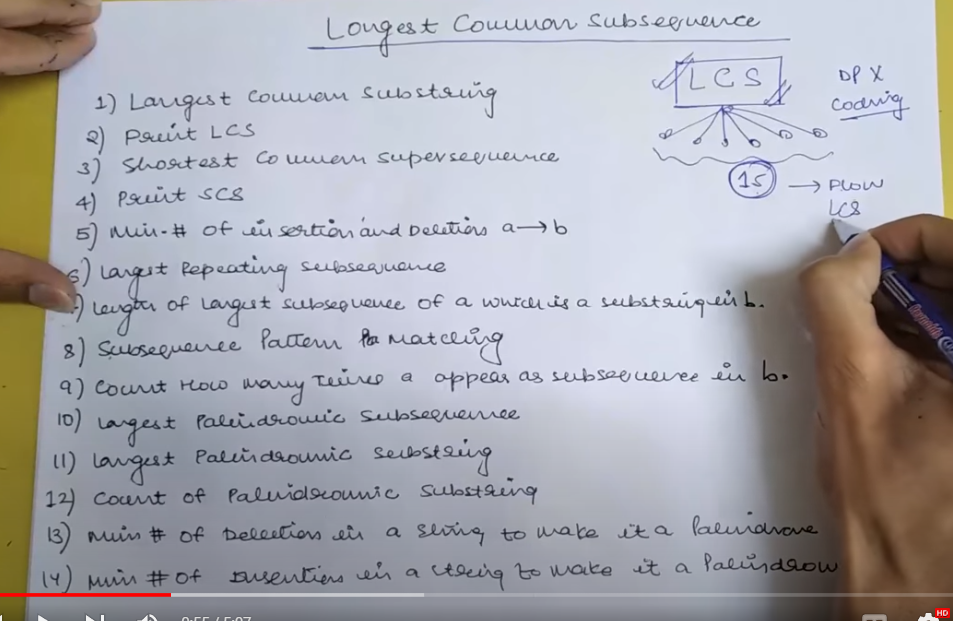 Longest Common Subsequence
LCS
DP X
Coding
15 → FLOW
LCS
1) Largest Common Substring
2) Print LCS
3) Shortest Common Supersequence
4) Print SCS
5) Min # of insertion and Deletions a → b
6) Largest Repeating Subsequence
) length of largest subsequence of a which is a substring in b.
8) Subsequence Pattern Matching
9) Count How many Times a appear as subsequence in b.
10) largest Palindromic Subsequence
11) largest Palindromic Substring
12) Count of Palindromic Substring
13) Min # of Deletion in a string to make it a Palindrome
14) Min # of Insertion in a string to make it a Palindrom
Reynolds
HD